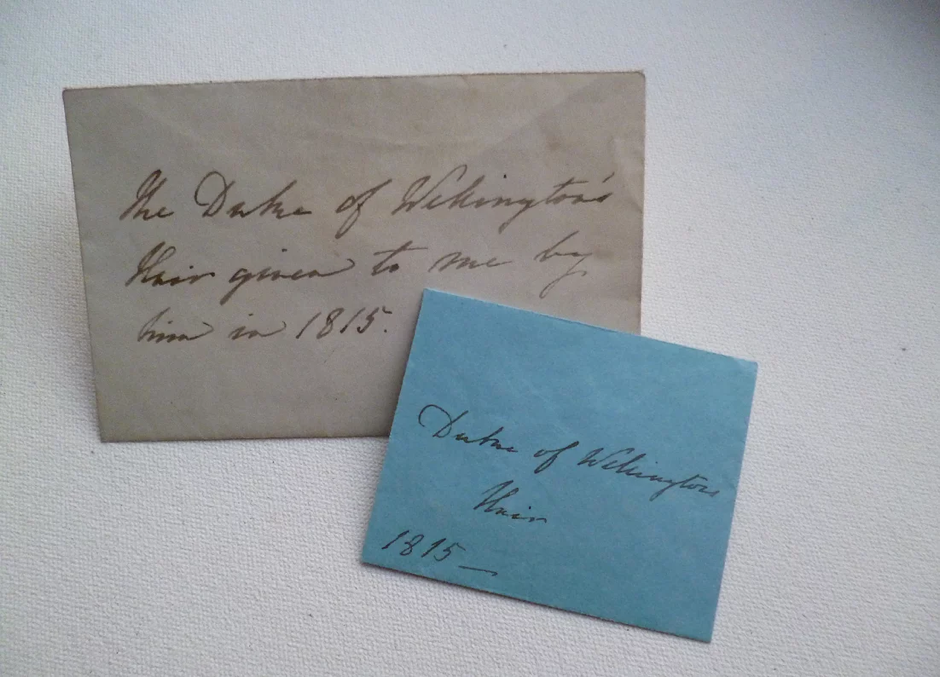 The Duke of Wellington's
Hair given to me by
him in 1815.
Duke of Wellingtons
Hair
1815 —